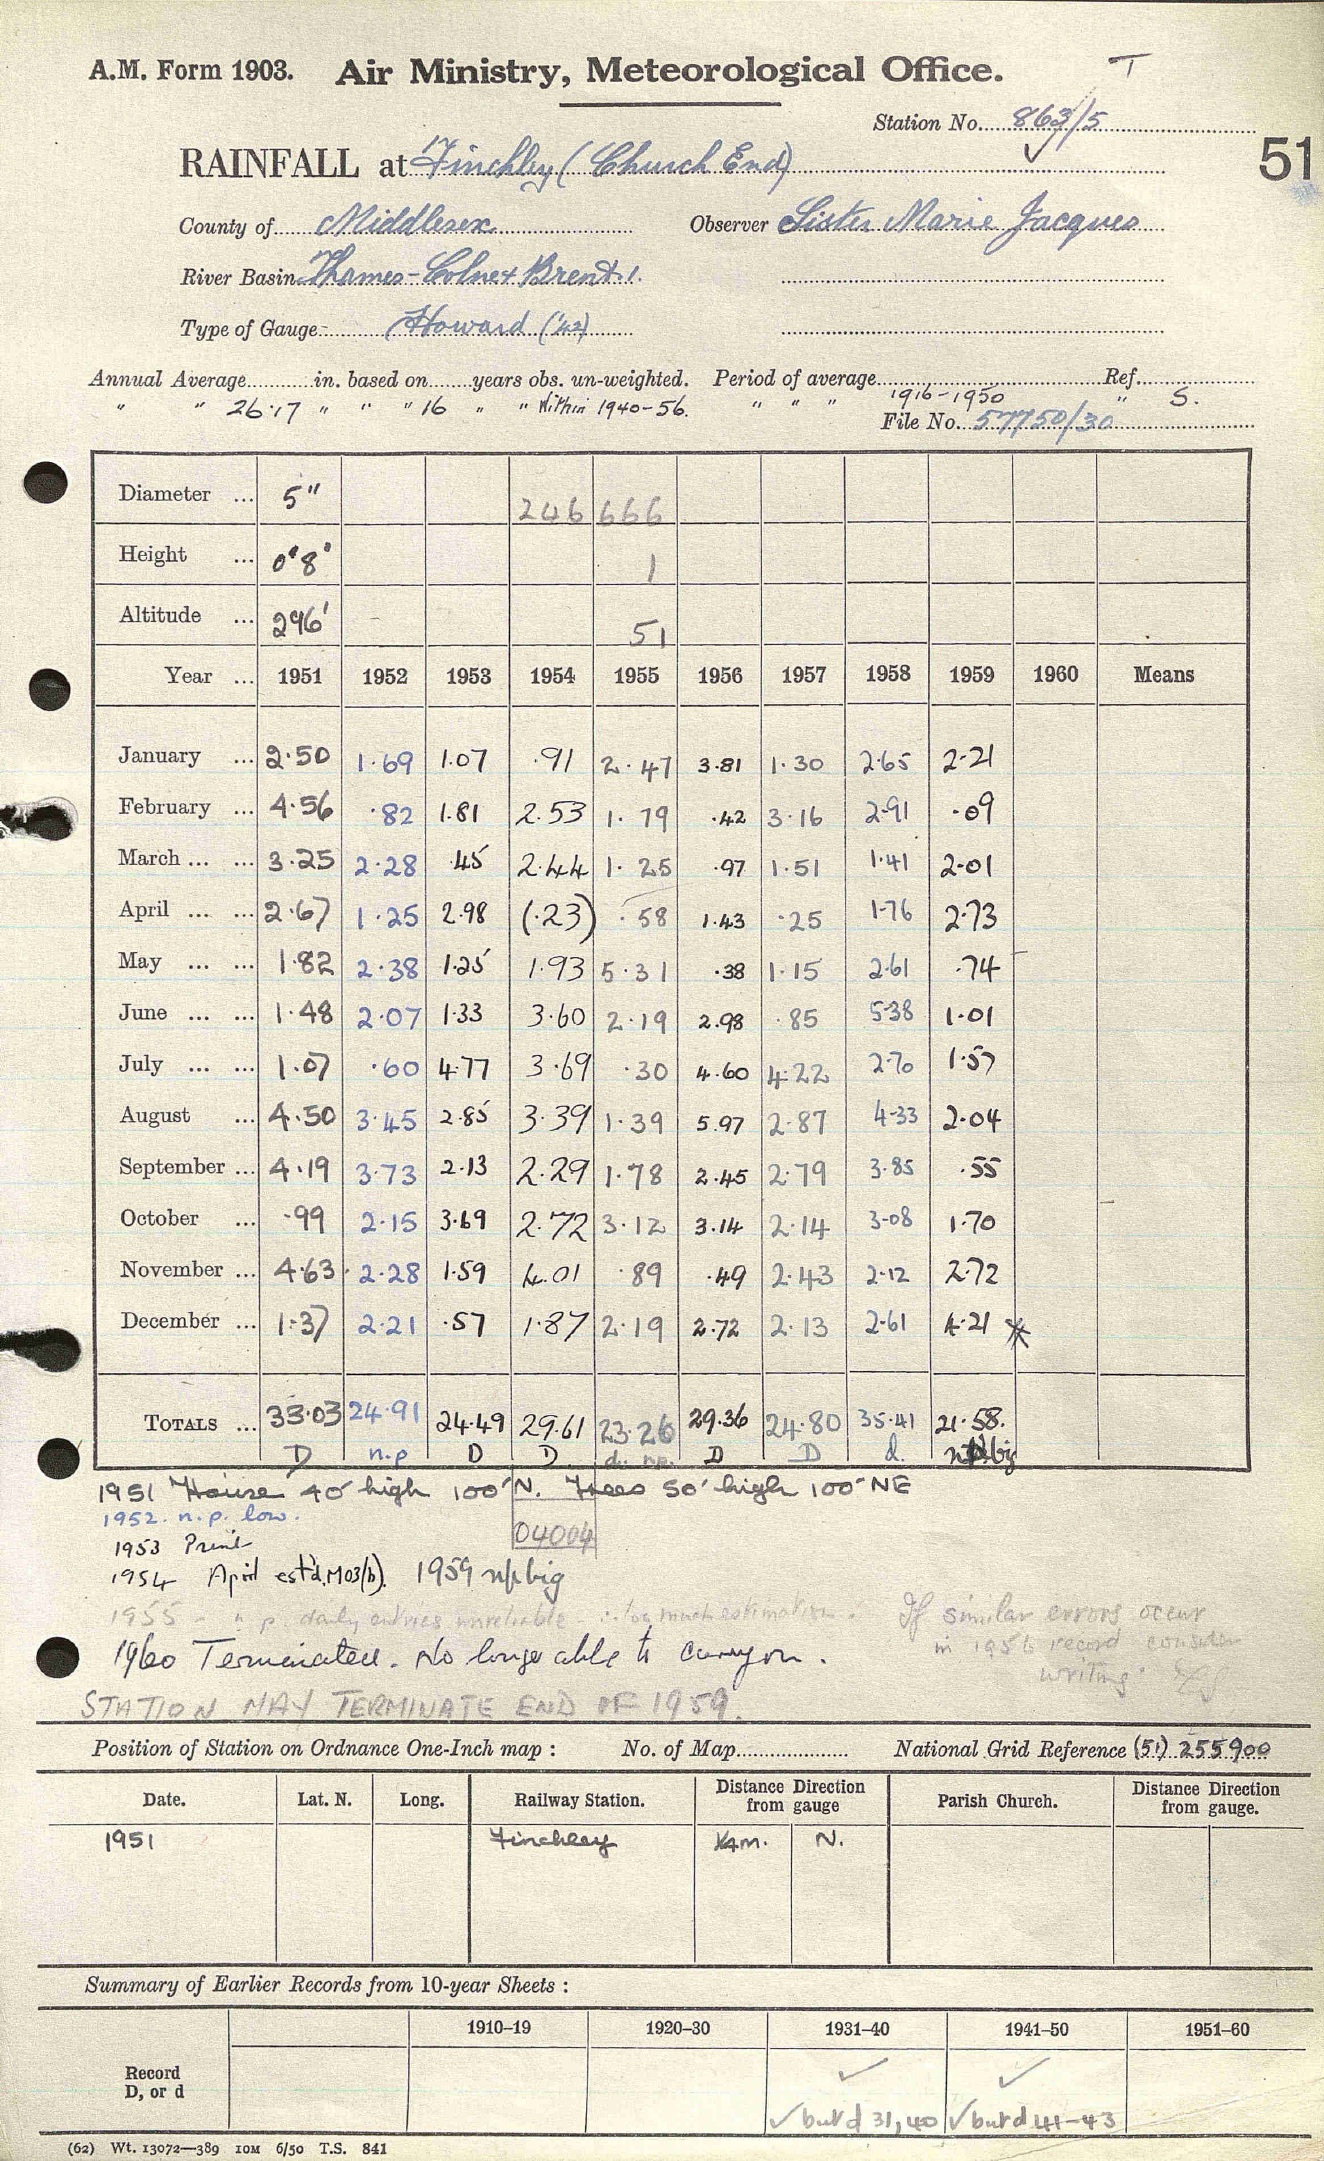 A.M. Form 1903. Air Ministry, Meteorological Office. T
Station No. 863/5
51
RAINFALL at Finchley (Church End)
County of Middlesex Observer Sister Marie Jacques
River Basin Thames-Colne & Brent.1.
Type of Gauge Howard ('42)
Annual Average in. based on years obs. un-weighted. Period of average 1916-1950 Ref.
" " 26.17 " " " 16 " " Within 1940-56. " " " " S.
File No. 57750/30
Diameter ... 5" 246 666
Height ... 0'8" 1
Altitude ... 296' 51
Year ... 1951 1952 1953 1954 1955 1956 1957 1958 1959 1960 Means
January ... 2.50 1.69 1.07 .91 2.47 3.81 1.30 2.65 2.21
February ... 4.56 .82 1.81 2.53 1.79 .42 3.16 2.91 .09
March ... ... 3.25 2.28 .45 2.44 1.25 .97 1.51 1.41 2.01
April ... ... 2.67 1.25 2.98 (.23) .58 1.43 .25 1.76 2.73
May ... ... 1.82 2.38 1.25 1.93 5.31 .38 1.15 2.61 .74
June ... ... 1.48 2.07 1.33 3.60 2.19 2.98 .85 5.38 1.01
July ... ... 1.07 .60 4.77 3.69 .30 4.60 4.22 2.70 1.57
August ... 4.50 3.45 2.85 3.39 1.39 5.97 2.87 4.33 2.04
September ... 4.19 3.73 2.13 2.29 1.78 2.45 2.79 3.85 .55
October ... .99 2.15 3.69 2.72 3.12 3.14 2.14 3.08 1.70
November ... 4.63 2.28 1.59 4.01 .89 .49 2.43 2.12 2.72
December ... 1.37 2.21 .57 1.87 2.19 2.72 2.13 2.61 4.21
TOTALS ... 33.03 24.91 24.49 29.61 23.26 29.36 24.80 35.41 21.58.
D n.p D D d. np. D D d. big
1951 House 40' high 100' N. Trees 50' high 100' NE
1952. n.p. low.
04004
1953 Print
1954 April est'd. M03/(b). 1959 np big
1955 - n p. daily entries unreliable - too much estimation.
If similar errors occur
in 1956 record consider
writing.
1960 Terminated. No longer able to carry on.
STATION MAY TERMINATE END OF 1959.
Position of Station on Ordnance One-Inch map : No. of Map National Grid Reference (51) 255900
Date. Lat. N. Long. Railway Station. Distance from gauge Direction Parish Church. Distance Direction from gauge.
1951 Finchley ¼m. N.
Summary of Earlier Records from 10-year Sheets :
1910–19 1920–30 1931–40 1941–50 1951–60
Record
D, or d
✓ ✓
✓ but d 31, 40 ✓ but d 41-43
(62) Wt. 13072—389 10M 6/50 T.S. 841